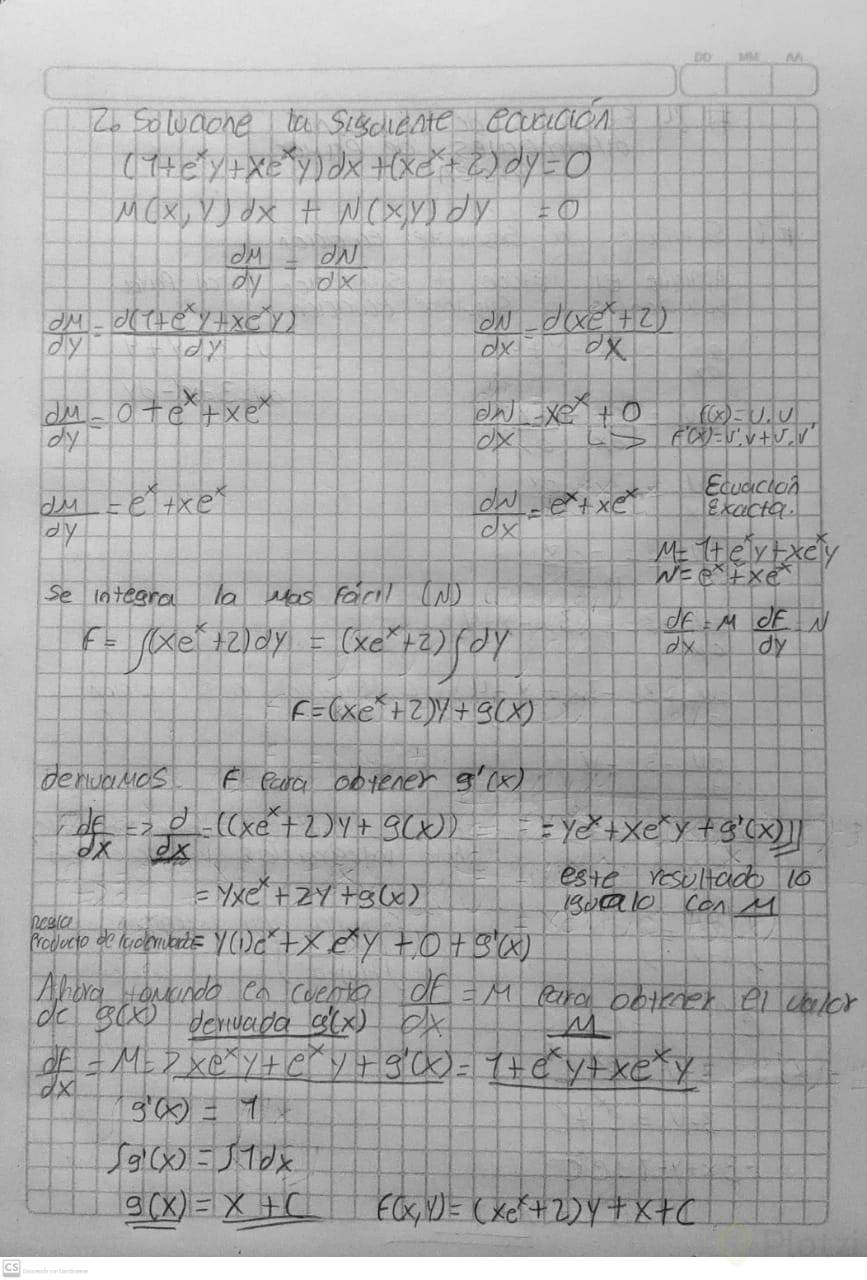 DD MM AA
2. Solucione la siguiente ecuación
(1+eˣy+xeˣy)dx+(xeˣ+2)dy=0
M(x,y)dx + N(x,y)dy =0
dM/dy = dN/dx
dM/dy = d(1+eˣy+xeˣy)/dy dN/dx = d(xeˣ+2)/dx
dM/dy = 0+eˣ+xeˣ dN/dx = xeˣ+0 f(x)=u.v
f'(x)=u'.v+u.v'
dM/dy = eˣ+xeˣ dN/dx = eˣ+xeˣ Ecuación
Exacta.
M=1+eˣy+xeˣy
N=eˣ+xeˣ
Se integra la mas fácil (N)
df/dx = M df/dy = N
F=∫(xeˣ+2)dy = (xeˣ+2)∫dy
F=(xeˣ+2)y+g(x)
derivamos F para obtener g'(x)
df/dx => d/dx =((xeˣ+2)y+g(x)) = =yeˣ+xeˣy+g'(x)//
= yxeˣ+2y+g(x) este resultado lo
igualo con M
regla
Producto de la derivada = y(1)eˣ+x.eˣy+0+g'(x)
Ahora tomando en cuenta df/dx = M para obtener el valor
de g(x) derivada g'(x) M
df/dx = M => xeˣy+eˣy+g'(x) = 1+eˣy+xeˣy
g'(x) = 1
∫g'(x) = ∫1dx
g(x) = x+C F(x,y)=(xeˣ+2)y+x+C
Platzi
CS